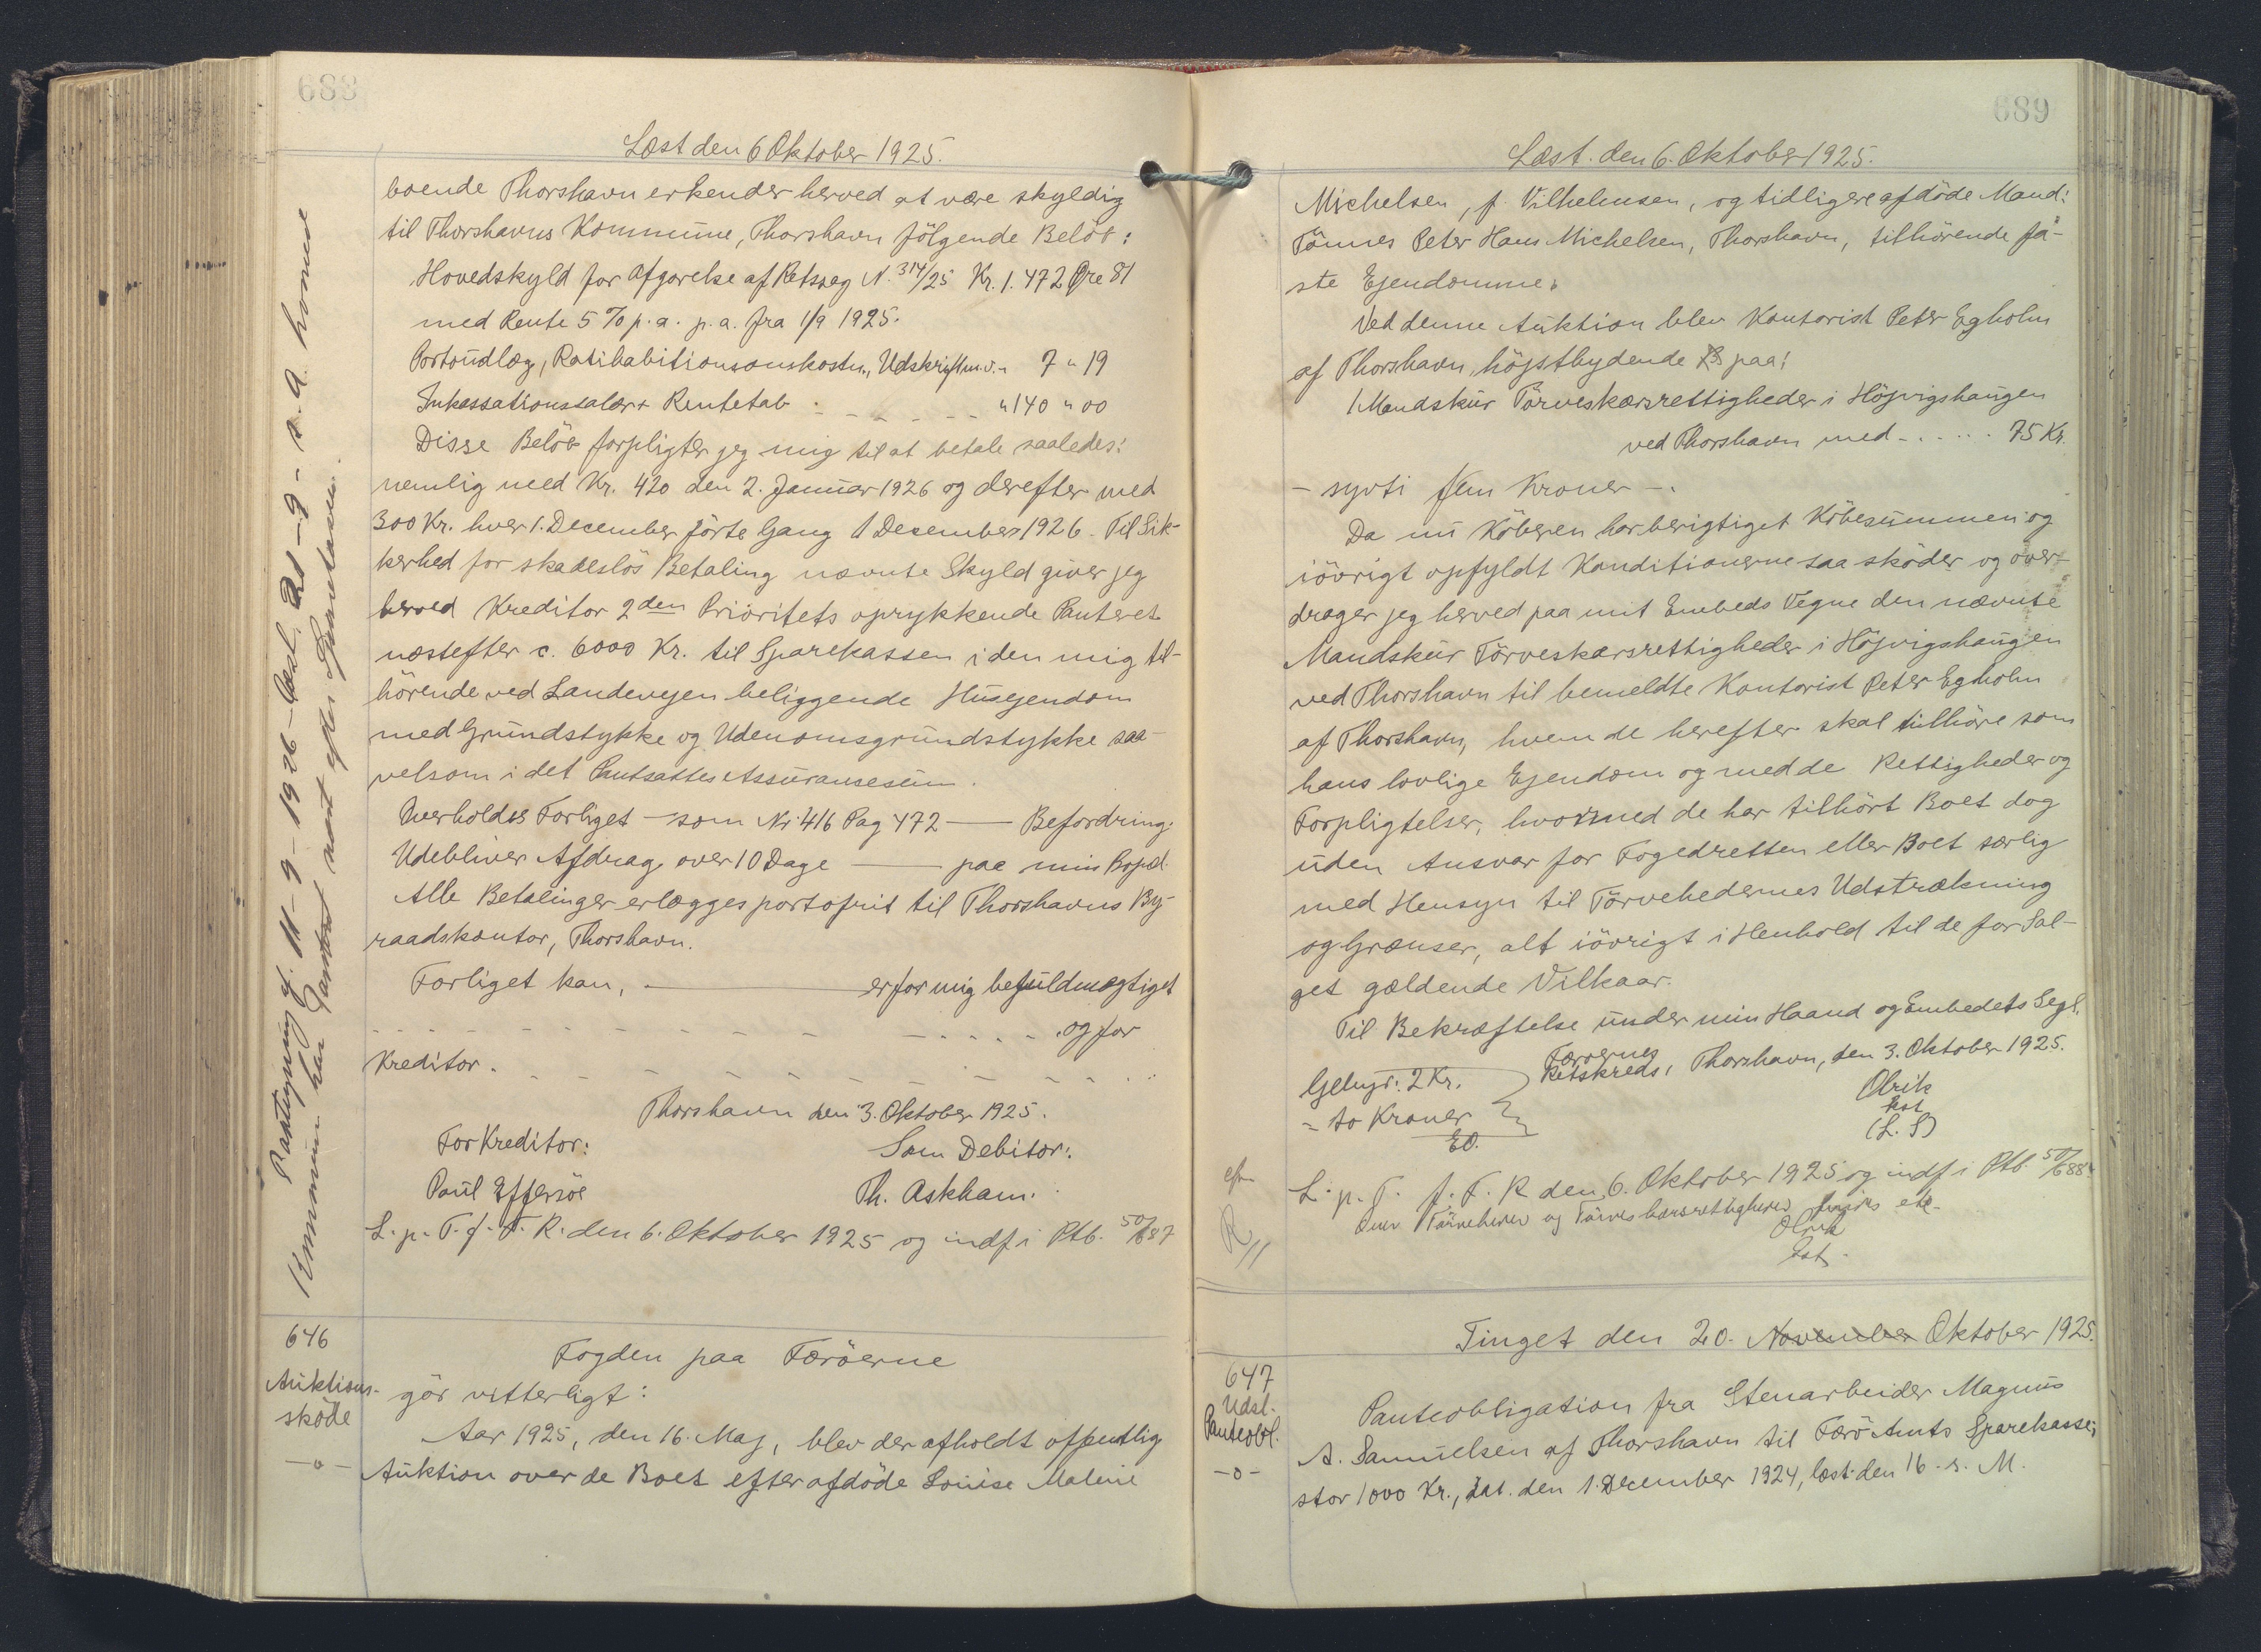 688
Læst den 6 Oktober 1925.
boende Thorshavn erkender herved at være skyldig
til Thorshavns Kommune, Thorshavn følgende Beløb:
Hovedskyld for Afgørelse af Retssag N. 314/25 Kr. 1.472 Øre 81
med Rente 5 % p.a. p.a. fra 1/9 1925.
Portoudlæg, Ratihabitionsomkostn., Udskrift m.v. " 7 " 19
Inkassationssalær + Rentetab " 140 " 00
Disse Beløb forpligter jeg mig til at betale saaledes:
nemlig med Kr. 420 den 2. Januar 1926 og derefter med
300 Kr. hver 1. Decemberførte Gang 1 December 1926. Til Sik-
kerhed for skadesløs Betaling nævnte Skyld giver jeg
herved Kreditor 2den Prioritets oprykkende Panteret
næstefter c. 6000 Kr. til Sparekassen i den mig til-
hørende ved Landevejen beliggende Husejendom
med Grundstykke og Udenomsgrundstykke saa-
velsom i det Pantsattes Assuransesum.
Overholdes Forliget - som Nr 416 Pag 472 — Befordring.
Udebliver Afdrag over 10 Dage — paa min Bopæl.
Alle Betalinger erlægges portofrit til Thorshavns By-
raadskontor, Thorshavn.
Forliget kan, — er for mig befuldmægtiget
- - - - - - - - - . og for
Kreditor. - - - - - - - - -
Thorshavn den 3. Oktober 1925.
For Kreditor: Som Debitor:
Paul Effersöe Th. Askham.
L. p. T. f. F. R. den 6. Oktober 1925 og indf i Ptb. 50/687
Paategning af 11-9-1926 - læst d. 21-9- s.A. hvorved
Kommunen har Panteret næst efter
646
Auktions-
skøde
-o-
Fogden paa Færöerne
gör vitterligt:
Aar 1925, den 16. Maj, blev der afholdt offentlig
Auktion over de Boet efter afdöde Louise Malene
689
Læst. den 6. Oktober 1925.
Michelsen, f. Vilhelmsen, og tidligere afdöde Mand:
Tönnes Peter Hans Michelsen, Thorshavn, tilhörende fa-
ste Ejendomme.
Ved denne Auktion blev Kontorist Peter Egholm
af Thorshavn, höjstbydende paa:
1 Mandskur Törveskærsrettigheder i Höjvigshaugen
ved Thorshavn med - . . . . . 75 Kr.
- syvti fem Kroner -.
Da nu Köberen har berigtiget Köbesummen og
iövrigt opfyldt Konditionerne saa sköder og over-
drager jeg herved paa mit Embeds Vegne den nævnte
Mandskur Törveskærsrettigheder i Höjvigshaugen
ved Thorshavn til bemeldte Kontorist Peter Egholm
af Thorshavn, hvem de herefter skal tilhöre som
hans lovlige Ejendom og med de Rettigheder og
Forpligtelser, hvormed de har tilhört Boet dog
uden Ansvar for Fogedretten eller Boet særlig
med Hensyn til Törvehedernes Udstrækning
og Grænser, alt iövrigt i Henhold til de for Sal-
get gældende Vilkaar.
Til Bekræftelse under min Haand og Embedets Segl.
Færøernes
Retskreds, Thorshavn, den 3. Oktober 1925.
Gebyr: 2 Kr.
= to Kroner
EO.
Olrik
kst
(L. S)
L. p. T. f. F. R den 6. Oktober 1925 og indf i Ptb. 50/688.
Over Törveheder og Törveskærsrettigheder föres ete-
Olrik
kst.
R//
Tinget den 20. November Oktober 1925.
647
Udsl.
Panteobl.
-o-
Panteobligation fra Stenarbeider Magnus
A. Samuelsen af Thorshavn til Færö Amts Sparekasse,
stor 1000 Kr., dat. den 1. December 1924, læst den 16. s. M.